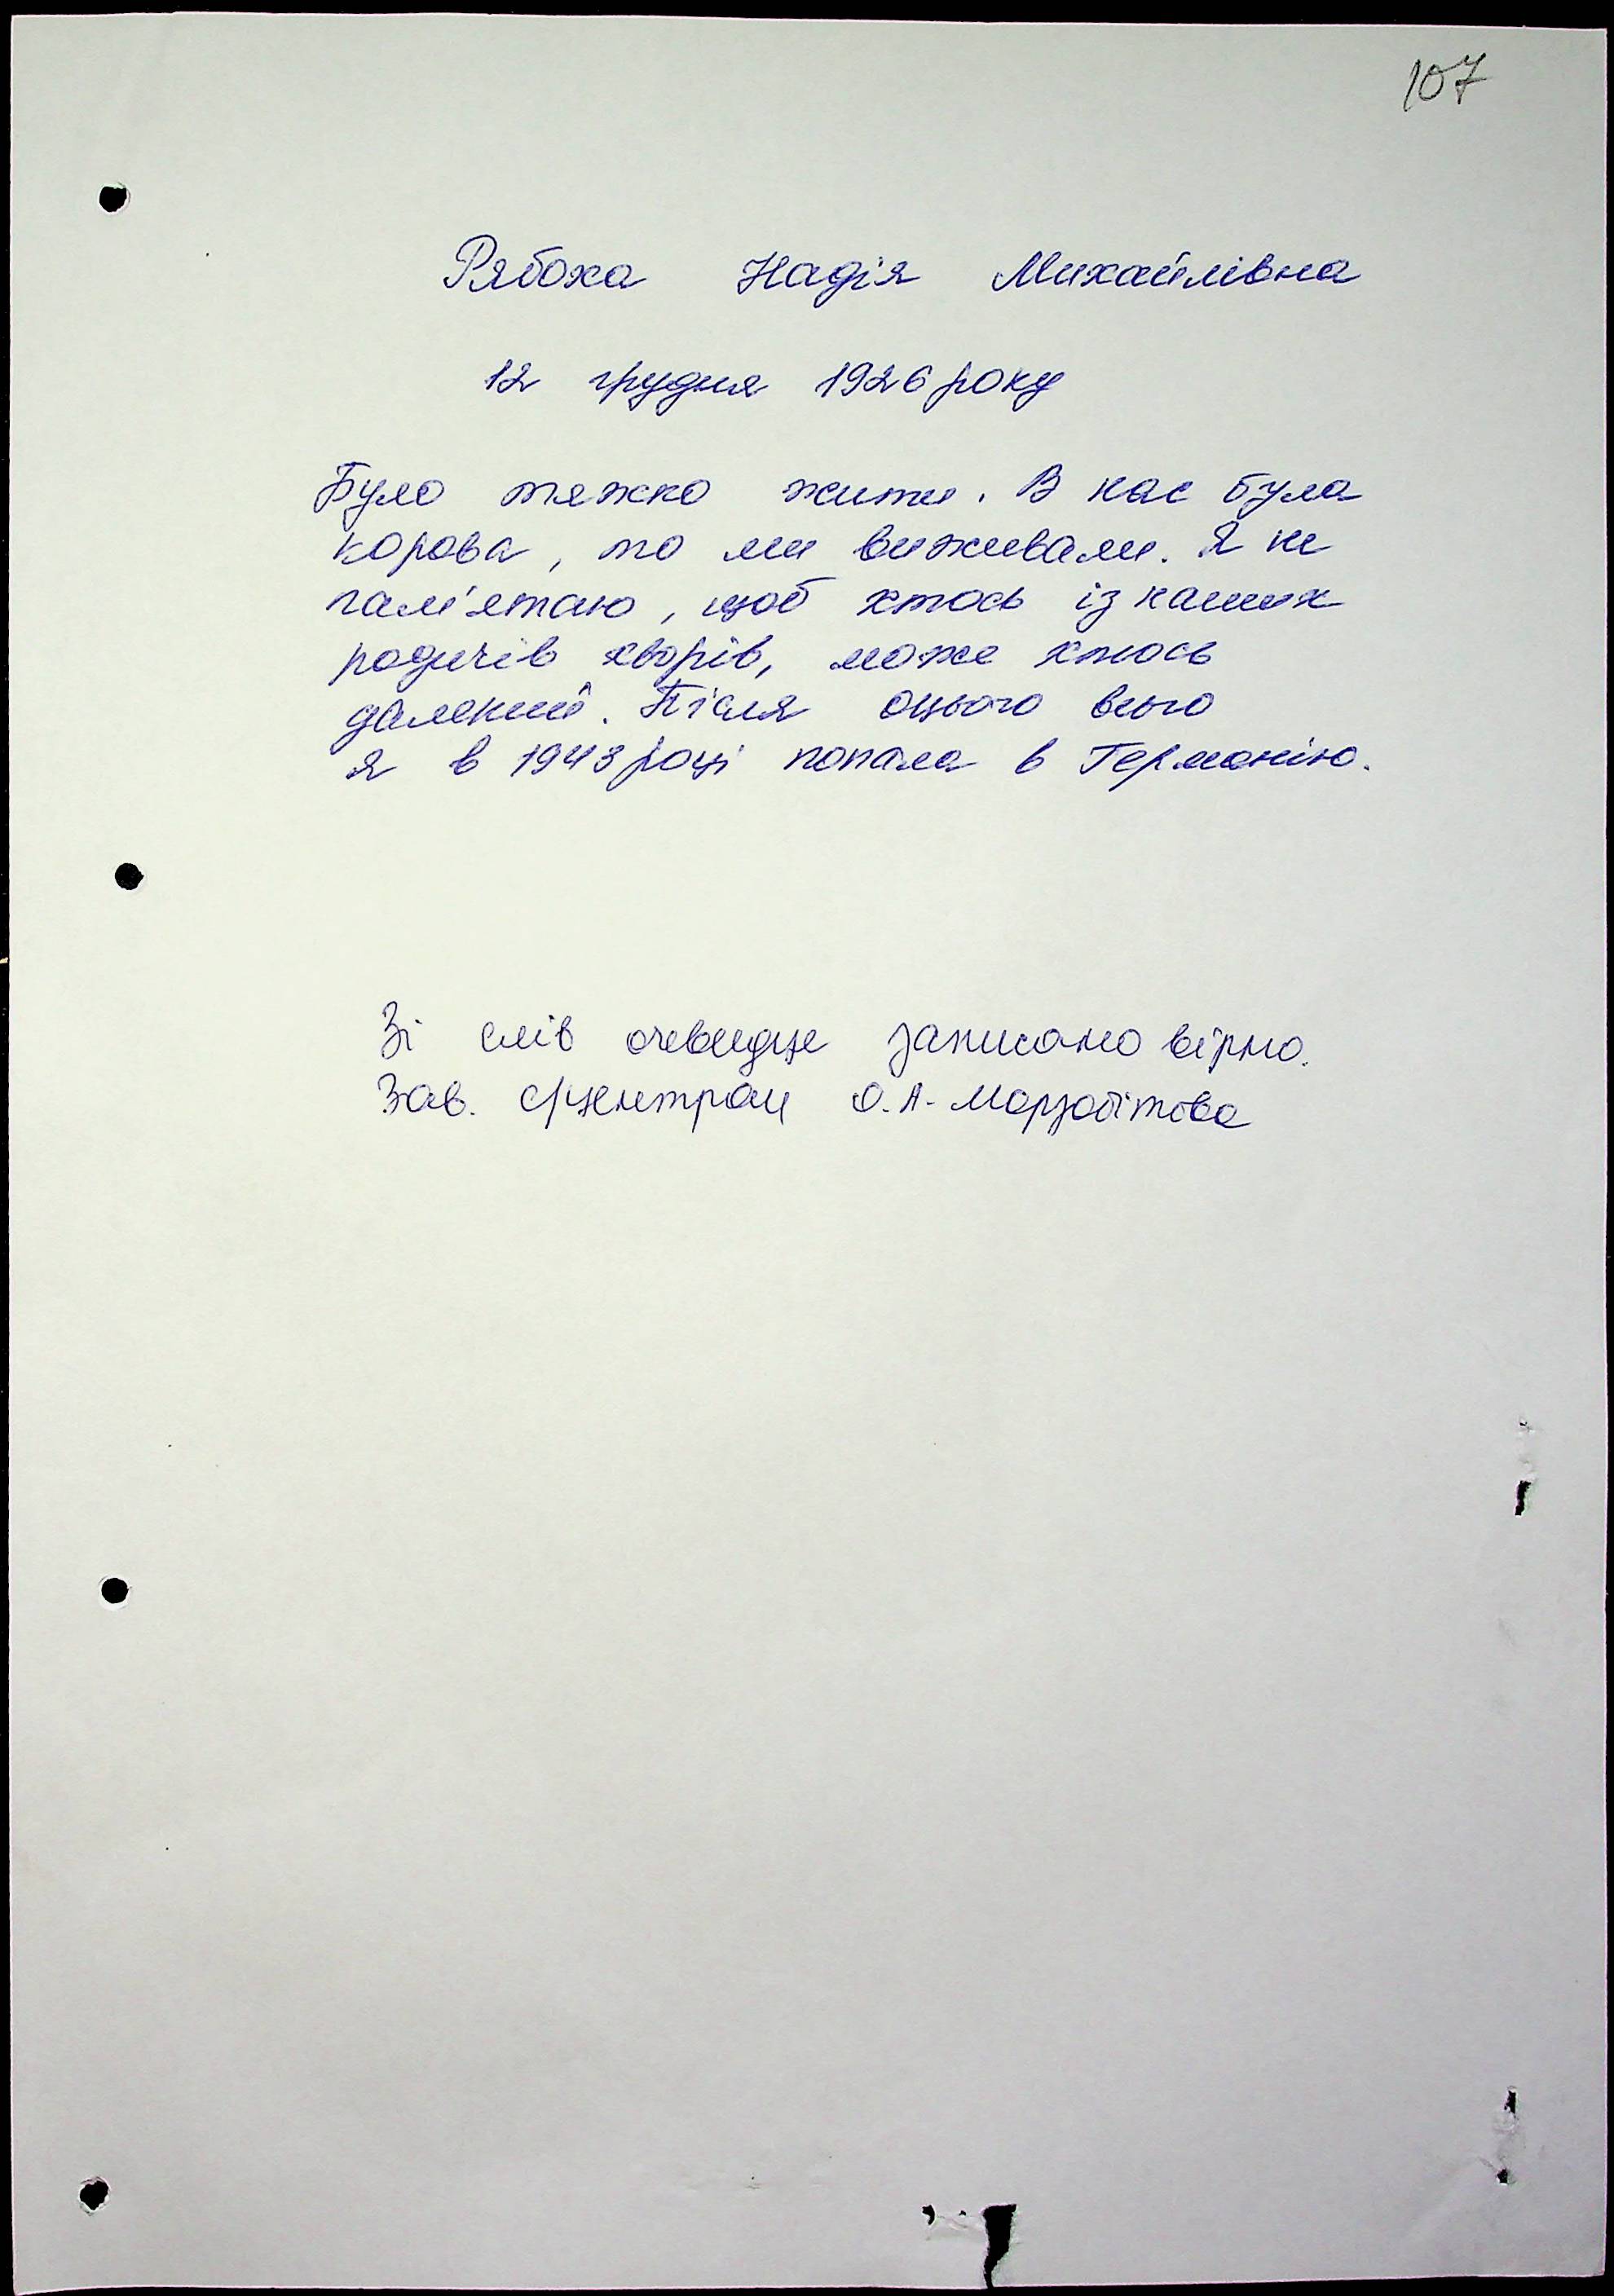 107
Рябоха Надія Михайлівна
12 грудня 1926 року
Було тяжко жити. В нас була
корова, то ми виживали. Я не
пам'ятаю, щоб хтось із наших
родичів хворів, може хтось
далекий. Після оцього всього
я в 1943 році попала в Германію.
Зі слів очевидця записано вірно.
Зав. О.А.